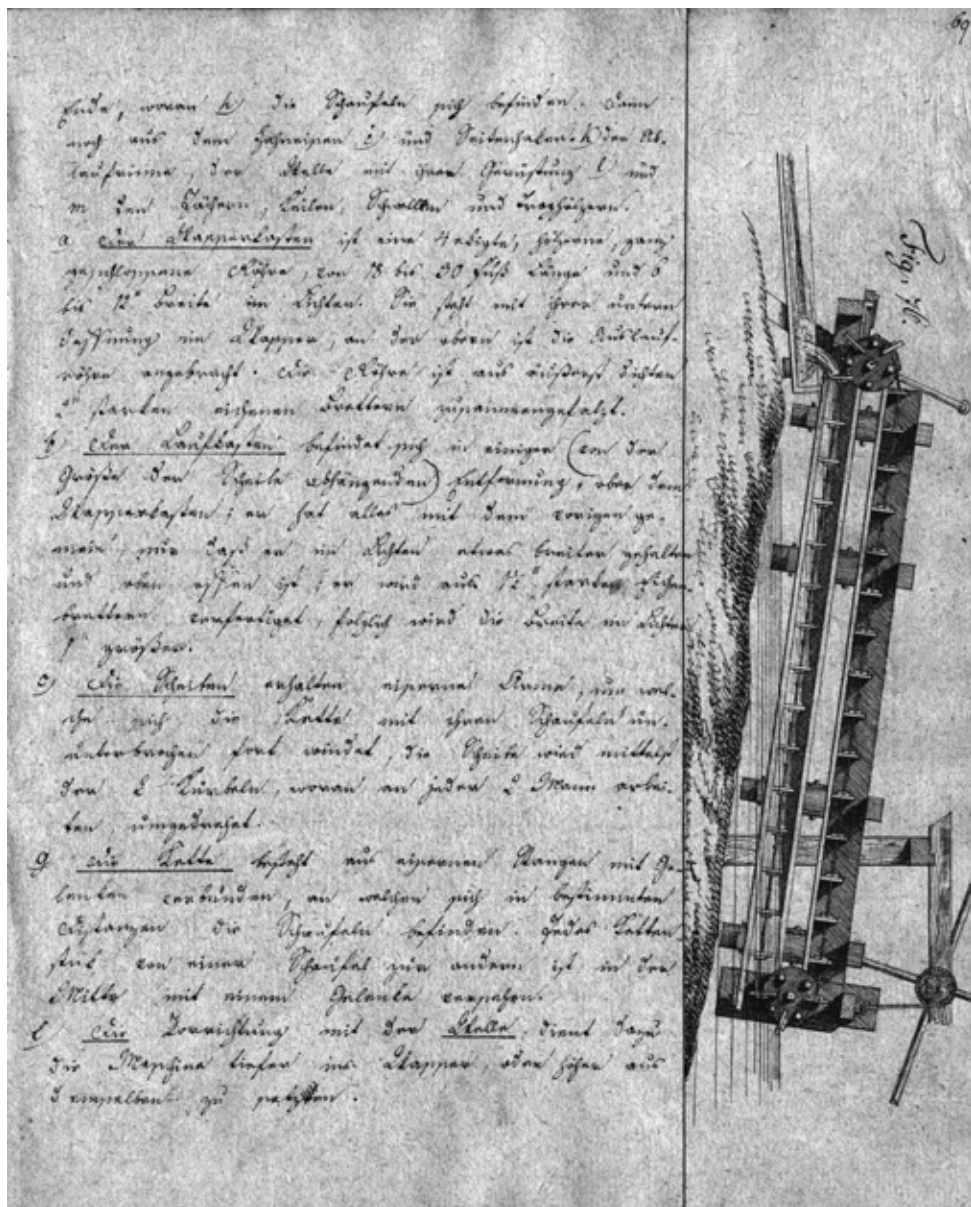 69
Ende, woran h die Schaufeln sich befinden. Dann
noch aus dem Zahneisen i und Seitenhaken k der Ab-
laufrinne, der Welle mit ihrer Gerüstung l und
m den Jöchern, Keilen, Schwellen und
a Der Wasserkasten ist eine 4 ekigte, hölzerne, ganz
geschlossene Röhre, von 18 bis 30 Fuß Länge und 6
bis 12" Breite im Lichten. Sie steht mit ihrer untern
Oeffnung im Wasser, an der obern ist die Auslauf-
röhre angebracht. Die Röhre ist aus äußerst dichten
2" starken eichenen Brettern zusammengefalzt.
b) Der Laufkasten befindet sich in einiger (von der
Größe der Scheibe abhängenden) Entfernung, ober dem
Wasserkasten; er hat alles mit dem vorigen ge-
mein, nur daß er im Lichten etwas breiter gehalten
und oben offen ist; er wird aus 1½" starken
brettern verfertiget, folglich wird die Breite im Lichten
1" größer.
c) Die Scheiben erhalten eiserne Arme, um wel-
che sich die Kette mit ihren Schaufeln un-
unterbrochen fort windet, die Scheibe wird mittelst
der 2 Kurbeln, woran an jeder 2 Mann arbei-
ten, umgedrehet.
g Die Kette besteht aus eisernen Stangen mit Ge-
lenken verbunden, an welchen sich in bestimmten
Distanzen die Schaufeln befinden. Jedes Ketten
stük von einer Schaufel zur andern ist in der
Mitte mit einem Gelenke versehen.
l) Die Vorrichtung mit der Welle, dient dazu
die Maschine tiefer ins Wasser, oder höher aus
demselben zu setzen.
Fig. 76.